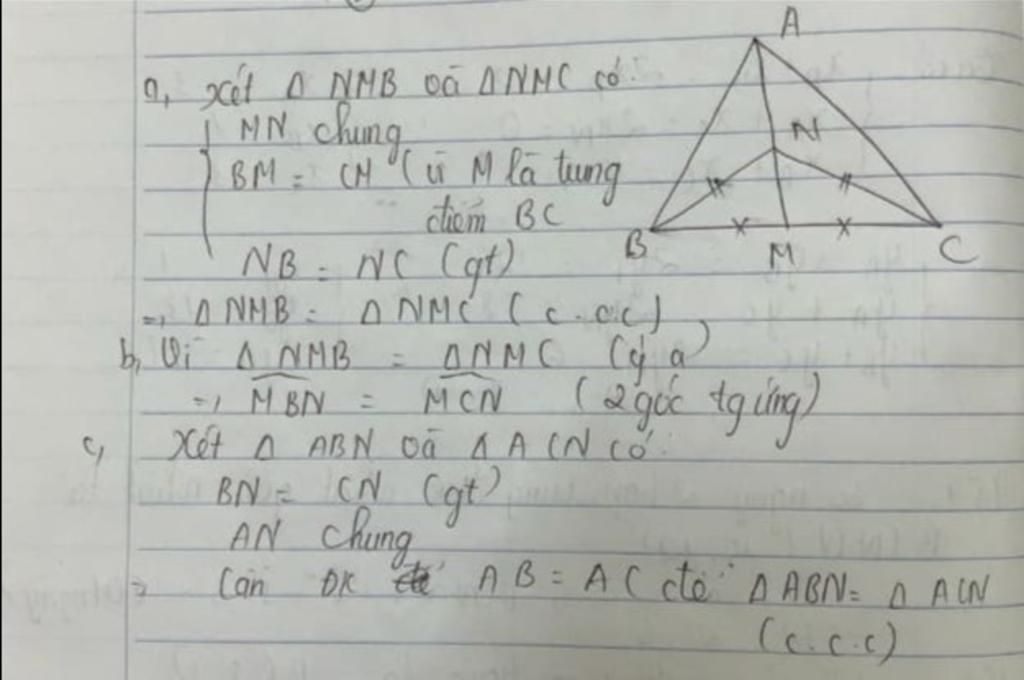 A
a, Xét Δ NMB và ΔNMC có:
N
MN chung
BM = CM (vì M là trung
điểm BC
B M C
NB = NC (gt)
=> ΔNMB = ΔNMC (c.c.c)
b, Vì ΔNMB = ΔNMC (ý a)
=> MBN = MCN (2 góc tg ứng)
c, Xét Δ ABN và Δ ACN có:
BN = CN (gt)
AN chung
=> Cần ĐK AB = AC để ΔABN = Δ ACN
(c.c.c)